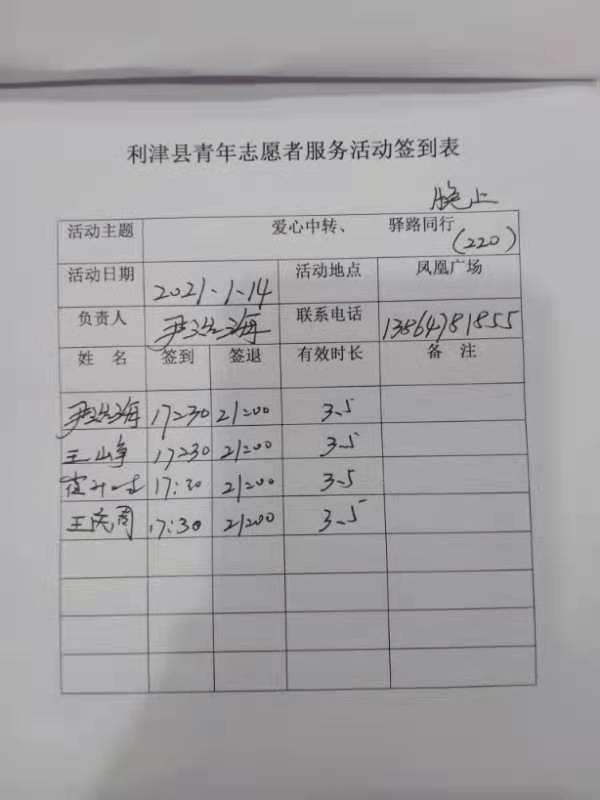 利津县青年志愿者服务活动签到表
晚上
活动主题 爱心中转、 驿路同行
(220)
活动日期 2021.1.14 活动地点 凤凰广场
负责人 尹海 联系电话 13864781855
姓 名 签到 签退 有效时长 备 注
尹海 17:30 21:00 3.5
王峥 17:30 21:00 3.5
17:30 21:00 3.5
王 17:30 21:00 3.5